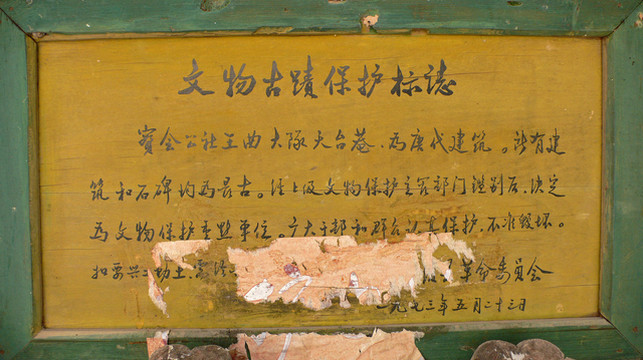 文物古蹟保护标誌
實会公社王曲大隊天台菴、為唐代建筑。所有建
筑和石碑均為最古。经上级文物保护主管部门鑑别后、决定
為文物保护重點单位。广大干部和群众认真保护、不准毁坏。
如要兴工动土、需经
革命委員会
一九七三年五月二十三日